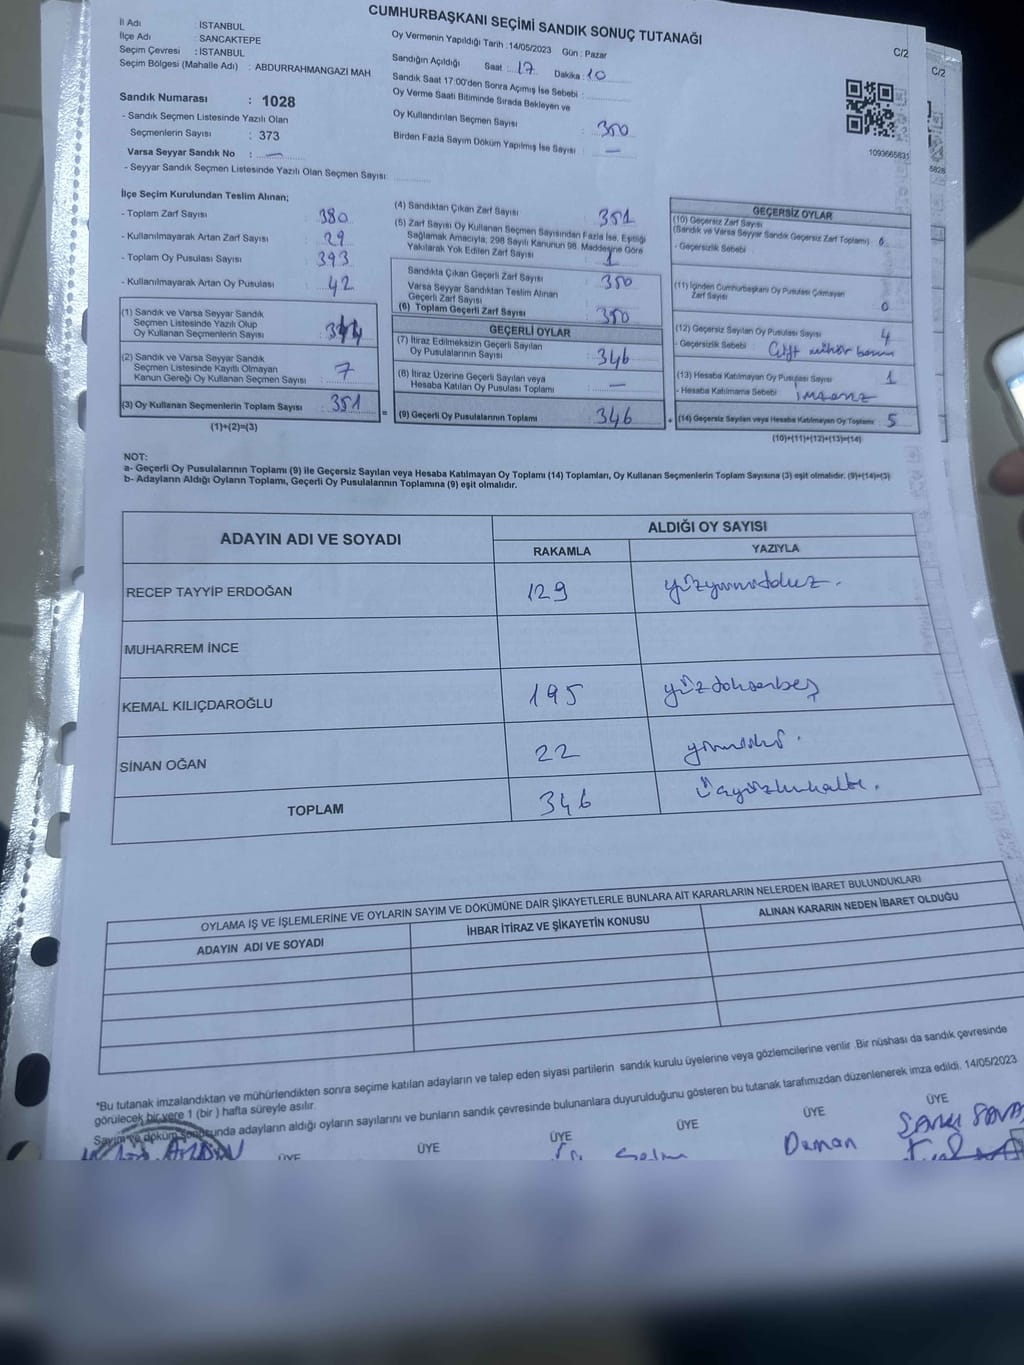 CUMHURBAŞKANI SEÇİMİ SANDIK SONUÇ TUTANAĞI
C/2
C/2
İl Adı : İSTANBUL
İlçe Adı : SANCAKTEPE
Seçim Çevresi : İSTANBUL
Seçim Bölgesi (Mahalle Adı) : ABDURRAHMANGAZİ MAH
Oy Vermenin Yapıldığı Tarih :14/05/2023 Gün : Pazar
Sandığın Açıldığı Saat : 17 Dakika : 10
Sandık Saat 17:00'den Sonra Açımış İse Sebebi :
Oy Verme Saati Bitiminde Sırada Bekleyen ve
Oy Kullandırılan Seçmen Sayısı : 350
Birden Fazla Sayım Döküm Yapılmış İse Sayısı : —
1093665831
5828
Sandık Numarası : 1028
- Sandık Seçmen Listesinde Yazılı Olan
Seçmenlerin Sayısı : 373
Varsa Seyyar Sandık No : —
- Seyyar Sandık Seçmen Listesinde Yazılı Olan Seçmen Sayısı:
İlçe Seçim Kurulundan Teslim Alınan;
- Toplam Zarf Sayısı : 380
- Kullanılmayarak Artan Zarf Sayısı : 29
- Toplam Oy Pusulası Sayısı : 393
- Kullanılmayarak Artan Oy Pusulası : 42
(1) Sandık ve Varsa Seyyar Sandık
Seçmen Listesinde Yazılı Olup
Oy Kullanan Seçmenlerin Sayısı :
(2) Sandık ve Varsa Seyyar Sandık
Seçmen Listesinde Kayıtlı Olmayan
Kanun Gereği Oy Kullanan Seçmen Sayısı : 7
(3) Oy Kullanan Seçmenlerin Toplam Sayısı : 351
(1)+(2)=(3)
(4) Sandıktan Çıkan Zarf Sayısı : 351
(5) Zarf Sayısı Oy Kullanan Seçmen Sayısından Fazla İse, Eşitliği
Sağlamak Amacıyla, 298 Sayılı Kanunun 98. Maddesine Göre
Yakılarak Yok Edilen Zarf Sayısı : 1
Sandıkta Çıkan Geçerli Zarf Sayısı : 350
Varsa Seyyar Sandıktan Teslim Alınan
Geçerli Zarf Sayısı :
(6) Toplam Geçerli Zarf Sayısı : 350
GEÇERLİ OYLAR
(7) İtiraz Edilmeksizin Geçerli Sayılan
Oy Pusulalarının Sayısı : 346
(8) İtiraz Üzerine Geçerli Sayılan veya
Hesaba Katılan Oy Pusulası Toplamı : —
(9) Geçerli Oy Pusulalarının Toplamı : 346
GEÇERSİZ OYLAR
(10) Geçersiz Zarf Sayısı
(Sandık ve Varsa Seyyar Sandık Geçersiz Zarf Toplamı) : 0
- Geçersizlik Sebebi :
(11) İçinden Cumhurbaşkanı Oy Pusulası Çıkmayan
Zarf Sayısı : 0
(12) Geçersiz Sayılan Oy Pusulası Sayısı : 4
- Geçersizlik Sebebi : Çift mühür
(13) Hesaba Katılmayan Oy Pusulası Sayısı : 1
- Hesaba Katılmama Sebebi : imzasız
(14) Geçersiz Sayılan veya Hesaba Katılmayan Oy Toplamı : 5
(10)+(11)+(12)+(13)=(14)
NOT:
a- Geçerli Oy Pusulalarının Toplamı (9) ile Geçersiz Sayılan veya Hesaba Katılmayan Oy Toplamı (14) Toplamları, Oy Kullanan Seçmenlerin Toplam Sayısına (3) eşit olmalıdır. (9)+(14)=(3)
b- Adayların Aldığı Oyların Toplamı, Geçerli Oy Pusulalarının Toplamına (9) eşit olmalıdır.
ADAYIN ADI VE SOYADI
ALDIĞI OY SAYISI
RAKAMLA YAZIYLA
RECEP TAYYİP ERDOĞAN 129 yüzyirmidokuz.
MUHARREM İNCE
KEMAL KILIÇDAROĞLU 195 yüzdoksanbeş
SİNAN OĞAN 22 yirmiiki.
TOPLAM 346 üçyüzkırkaltı.
OYLAMA İŞ VE İŞLEMLERİNE VE OYLARIN SAYIM VE DÖKÜMÜNE DAİR ŞİKAYETLERLE BUNLARA AİT KARARLARIN NELERDEN İBARET BULUNDUKLARI
ADAYIN ADI VE SOYADI İHBAR İTİRAZ VE ŞİKAYETİN KONUSU ALINAN KARARIN NEDEN İBARET OLDUĞU
*Bu tutanak imzalandıktan ve mühürlendikten sonra seçime katılan adayların ve talep eden siyasi partilerin sandık kurulu üyelerine veya gözlemcilerine verilir .Bir nüshası da sandık çevresinde
görülecek bir yere 1 (bir ) hafta süreyle asılır.
Sayım ve döküm sonucunda adayların aldığı oyların sayılarını ve bunların sandık çevresinde bulunanlara duyurulduğunu gösteren bu tutanak tarafımızdan düzenlenerek imza edildi. 14/05/2023
ÜYE ÜYE ÜYE ÜYE ÜYE ÜYE
Duman